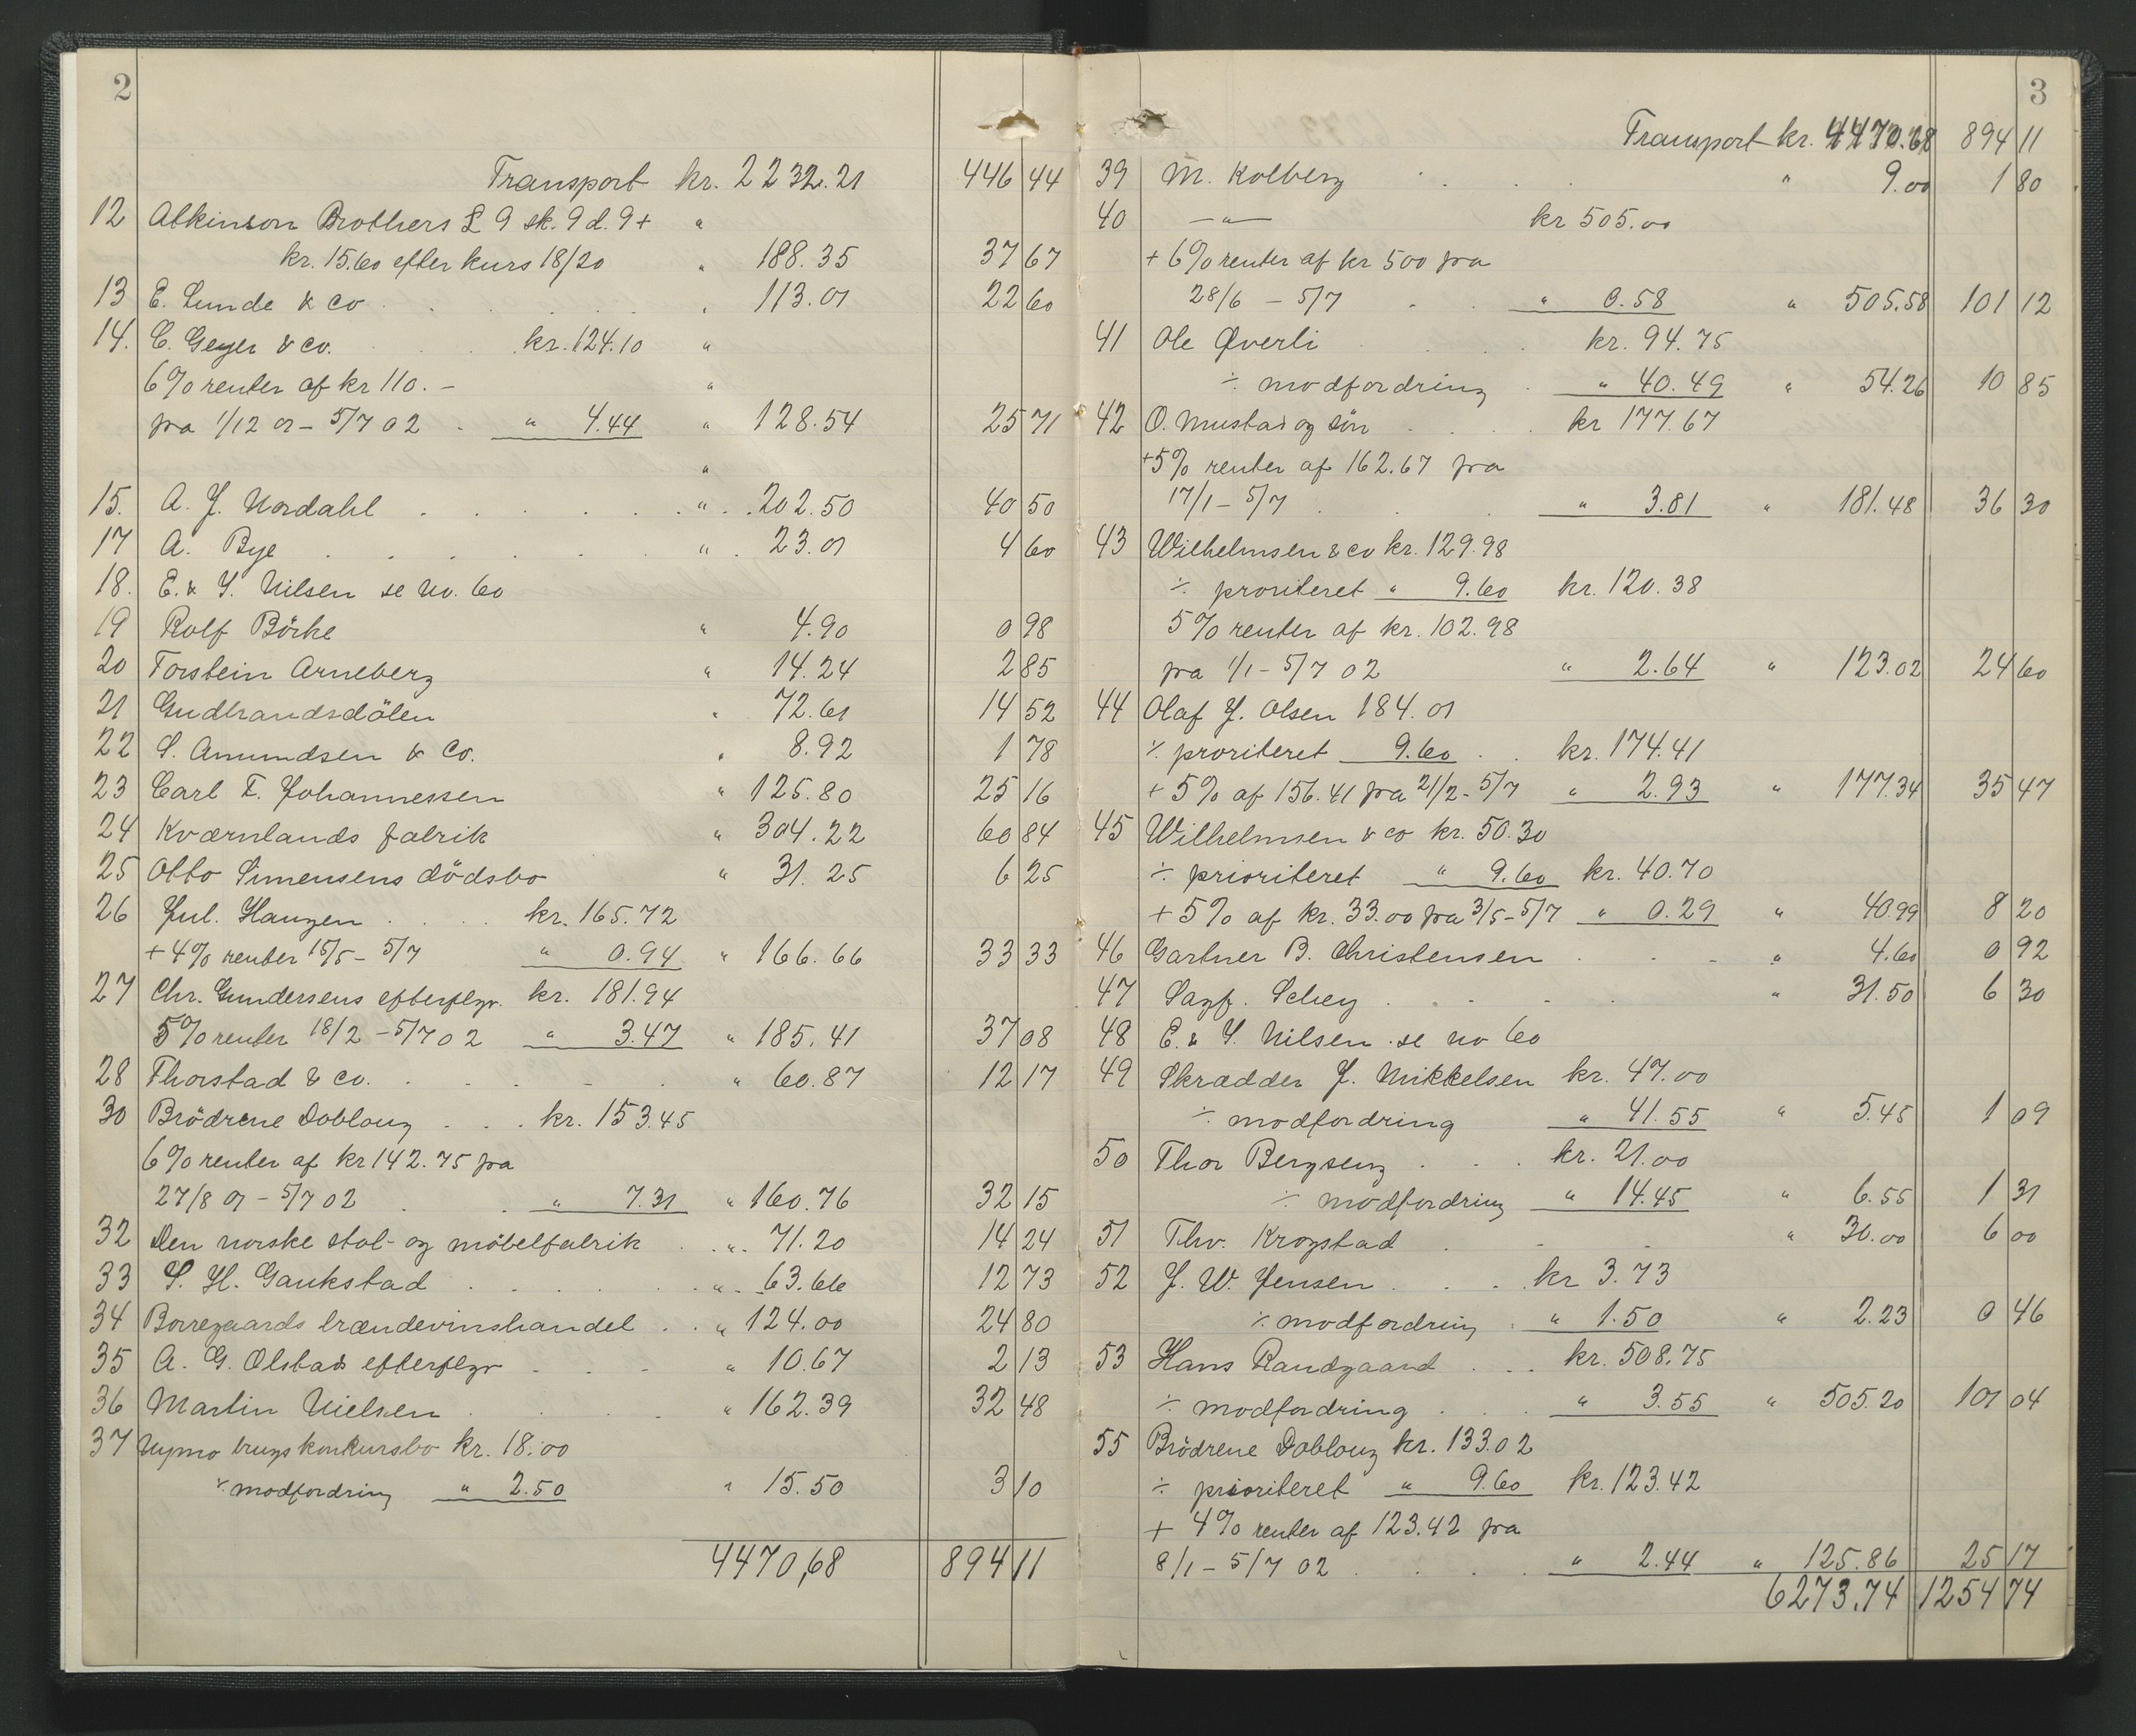 2
Transport kr. 2232.21 446 44
12 Atkinson Brothers £ 9 sk. 9 d. 9 + "
kr. 15.60 efter kurs 18/20 " 188.35 37 67
13 E. Lunde & Co . . . . . " 113.01 22 60
14. C. Geyer & co. . . . kr. 124.10 "
6% renter af kr 110. – "
fra 1/12 01 – 5/7 02 . " 4.44 " 128.54 25 71
"
15. A. J. Nordahl . . . . . . " . . 202.50 40 50
17 A. Bye . . . . . . " . 23.01 4 60
18. E. & S. Nilsen se no. 60
19 Rolf Börke " 4.90 0 98
20 Torstein Arneberg " 14.24 2 85
21 Gudbrandsdölen " 72.61 14 52
22 S. Amundsen & Co. " 8.92 1 78
23 Carl F. Johannessen " 125.80 25 16
24 Kværnlands fabrik " 304.22 60 84
25 Otto Simensens dödsbo " 31.25 6 25
26 Jul. Haugen . . . . kr. 165.72
+ 4% renter 15/5 – 5/7 " 0.94 " 166.66 33 33
27 Chr. Gundersens efterflgr. kr. 181.94
5% renter 18/2 – 5/7 02 " 3.47 " 185.41 37 08
28 Thorstad & co. . . . . . " 60.87 12 17
30 Brödrene Dobloug . . . kr. 153.45
6% renter af kr 142.75 fra
27/8 01 – 5/7 02 . . " 7.31 " 160.76 32 15
32 Den norske stol- og möbelfabrik . . " . 71.20 14 24
33 S. H. Gaukstad . . . . . . " . 63.66 12 73
34 Borregaards brændevinshandel . . " 124.00 24 80
35 A. G. Olstads efterflgr . . . " 10.67 2 13
36 Martin Nielsen . . . . " 162.39 32 48
37 Nymo brugs konkursbo kr. 18.00
÷ modfordring " 2.50 " 15.50 3 10
4470,68 894 11
3
Transport kr. 4470.68 894 11
39 M. Kolberg . . . " 9.00 1 80
40 – " – kr 505.00
+ 6% renter af kr 500 fra
28/6 – 5/7 . . " 0.58 " 505.58 101 12
41 Ole Øverli . . . kr. 94.75
÷ modfordring . " 40.49 " 54.26 10 85
42 O. Mustad og sön . . . . kr 177.67
+ 5% renter af 162.67 fra
17/1 – 5/7 . . . " 3.81 " 181.48 36 30
43 Wilhelmsen & co kr. 129.98
÷ proriteret " 9.60 kr. 120.38
5% renter af kr. 102.98
fra 1/1 – 5/7 02 " 2.64 " 123.02 24 60
44 Olaf J. Olsen 184.01
÷ proriteret 9.60 . . kr. 174.41
+ 5% af 156.41 fra 21/2 – 5/7 " 2.93 " 177.34 35 47
45 Wilhelmsen & co kr. 50.30
÷ prioriteret " 9.60 kr. 40.70
+ 5% af kr. 33.00 fra 3/5 – 5/7 " 0.29 " 40.99 8 20
46 Gartner B. Christensen . . . " 4.60 0 92
47 Sagf. Schey . . . . . " 31.50 6 30
48 E. & S. Nilsen . se no 60
49 Skrædder J. Mikkelsen kr. 47.00
÷ modfordring " 41.55 " 5.45 1 09
50 Thor Bergseng . . . kr. 21.00
÷ modfordring " 14.45 " 6.55 1 31
51 Thv. Krogstad . . . " 30.00 6 00
52 J. W. Jensen . . . kr 3.73
÷ modfordring . " 1.50 " 2.23 0 46
53 Hans Randgaard . . . kr. 508.75
÷ modfordring . . . " 3.55 " 505.20 101 04
55 Brödrene Dobloug kr. 133.02
÷ prioriteret " 9.60 kr. 123.42
+ 4% renter af 123.42 fra
8/1 – 5/7 02 . . . . " 2.44 " 125.86 25 17
6273.74 1254 74